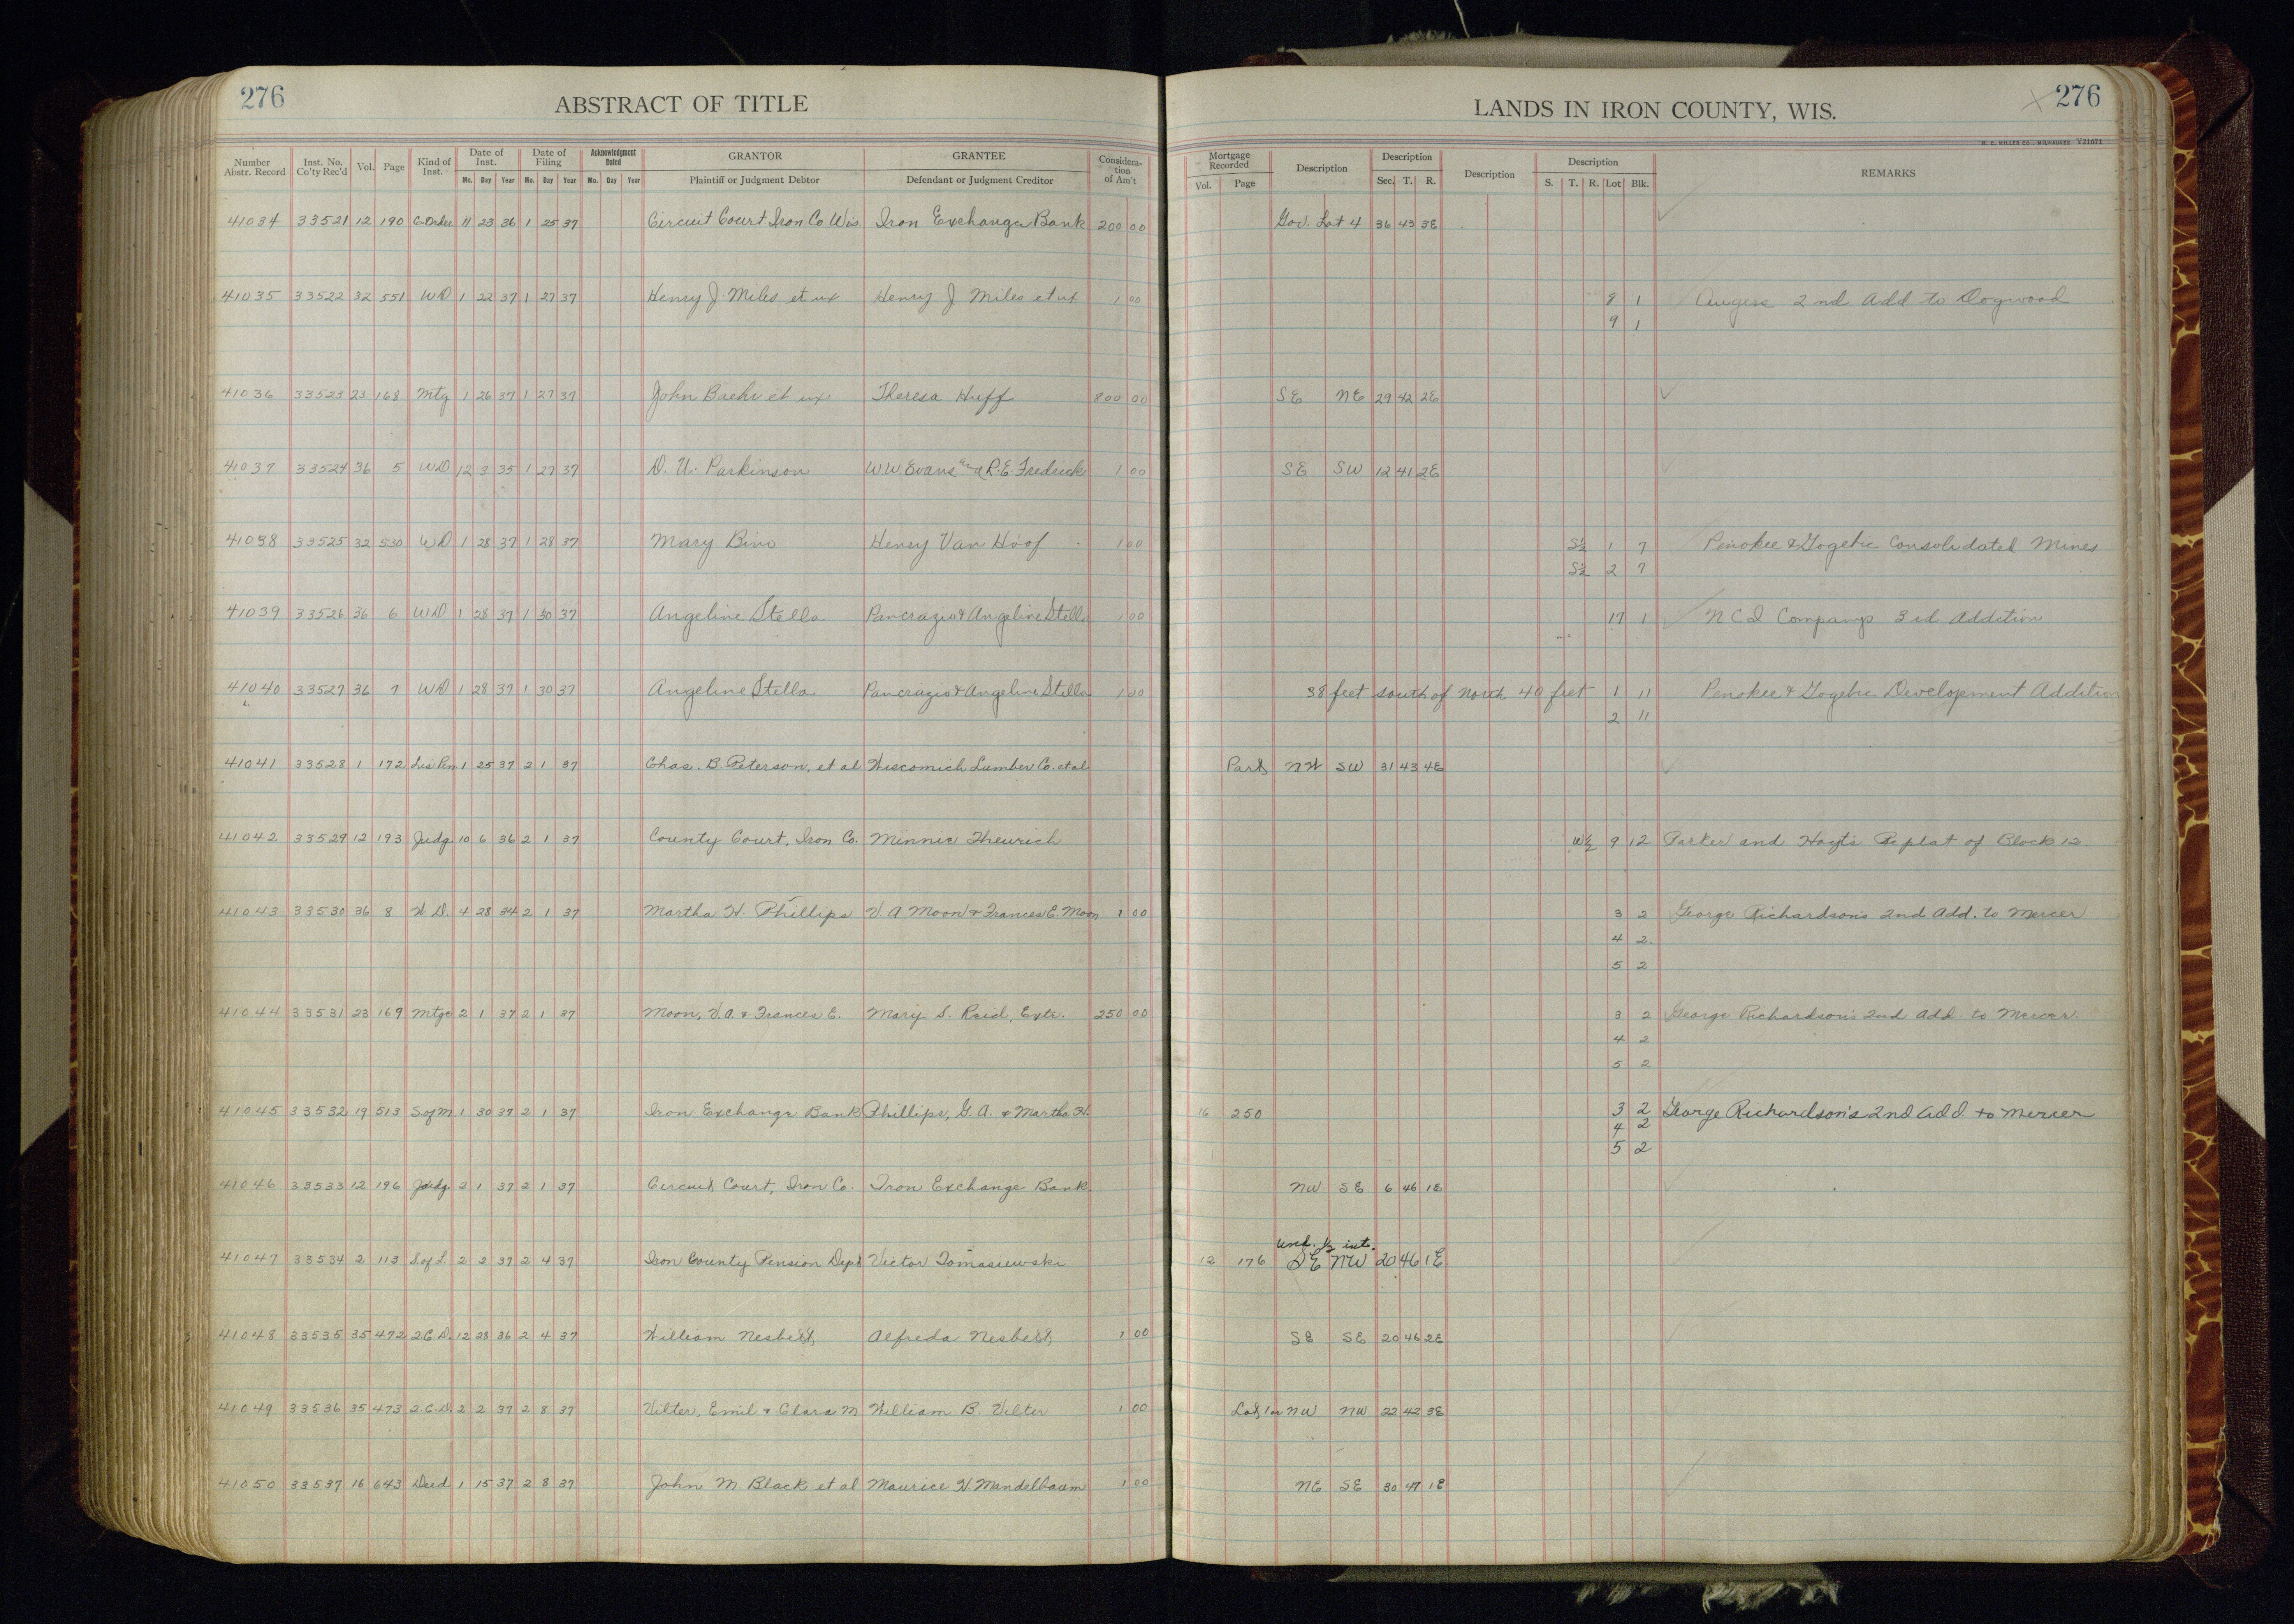 276
ABSTRACT OF TITLE
LANDS IN IRON COUNTY, WIS.
276
H. C. MILLER CO., MILWAUKEE V31671
Number Abstr. Record Inst. No. Co'ty Rec'd Vol. Page Kind of Inst. Date of Inst. Mo. Day Year Date of Filing Mo. Day Year Acknowledgment Dated Mo. Day Year GRANTOR Plaintiff or Judgment Debtor GRANTEE Defendant or Judgment Creditor Considera-tion of Am't Mortgage Recorded Vol. Page Description Description Sec. T. R. Description Description S. T. R. Lot Blk. REMARKS
41034 33521 12 190 C-Order 11 23 36 1 25 37 Circuit Court Iron Co Wis Iron Exchange Bank 200 00 Gov. Lot 4 36 43 3E
41035 33522 32 551 WD 1 22 37 1 27 37 Henry J. Miles et ux Henry J Miles et ux 1 00 8 1 2nd Add to Dogwood
9 1
41036 33523 23 168 Mtg 1 26 37 1 27 37 John Baehr et ux Theresa Huff 800 00 SE NE 29 42 2E
41037 33524 36 5 WD 12 3 35 1 27 37 D. U. Parkinson W W. Evans and R. E. Fredrick 1 00 SE SW 12 41 2E
41038 33525 32 530 WD 1 28 37 1 28 37 Mary Bino Henry Van Hoof 1 00 S½ 1 7 Penokee & Gogebic Consolidated Mines
S½ 2 7
41039 33526 36 6 WD 1 28 37 1 30 37 Angeline Stella Pancrazio & Angeline Stella 1 00 17 1 N C I Companys 3rd Addition
41040 33527 36 7 WD 1 28 37 1 30 37 Angeline Stella Pancrazio & Angeline Stella 1 00 38 feet south of north 40 feet 1 11 Penokee & Gogebic Development Addition
2 11
41041 33528 1 172 Lis Pen. 1 25 37 2 1 37 Chas. B. Peterson, et al Wiscomich Lumber Co. et al Part NW SW 31 43 4E
41042 33529 12 193 Judg. 10 6 36 2 1 37 County Court, Iron Co. Minnie Theurich W½ 9 12 Parker and Hoyt's Replat of Block 12.
41043 33530 36 8 W.D. 4 28 34 2 1 37 Martha H. Phillips V. A Moon & Frances E. Moon 1 00 3 2 George Richardson's 2nd Add. to Mercer
4 2.
5 2
41044 33531 23 169 Mtge 2 1 37 2 1 37 Moon, V. A. & Frances E. Mary S. Reid, Extr. 250 00 3 2 George Richardson's 2nd Add. to Mercer.
4 2
5 2
41045 33532 19 513 S.of M. 1 30 37 2 1 37 Iron Exchange Bank Phillips, G. A. & Martha H. 16 250 3 2 George Richardson's 2nd Add. to Mercer
4 2
5 2
41046 33533 12 196 Judg. 2 1 37 2 1 37 Circuit Court, Iron Co. Iron Exchange Bank. NW SE 6 46 1E
und. ½ int.
41047 33534 2 113 S.of L. 2 2 37 2 4 37 Iron County Pension Dept Victor Tomasiewski 12 176 SE NW 20 46 1E
41048 33535 35 472 2.C.D. 12 28 36 2 4 37 William Nesbitt Alfreda Nesbitt 1 00 SE SE 20 46 2E
41049 33536 35 473 2.C.D. 2 2 37 2 8 37 Vilter, Emil & Clara M William B. Vilter 1 00 Lot 1 or NW NW 22 42 3E
41050 33537 16 643 Deed 1 15 37 2 8 37 John M. Black et al Maurice H. Mandelbaum 1 00 NE SE 30 47 1E